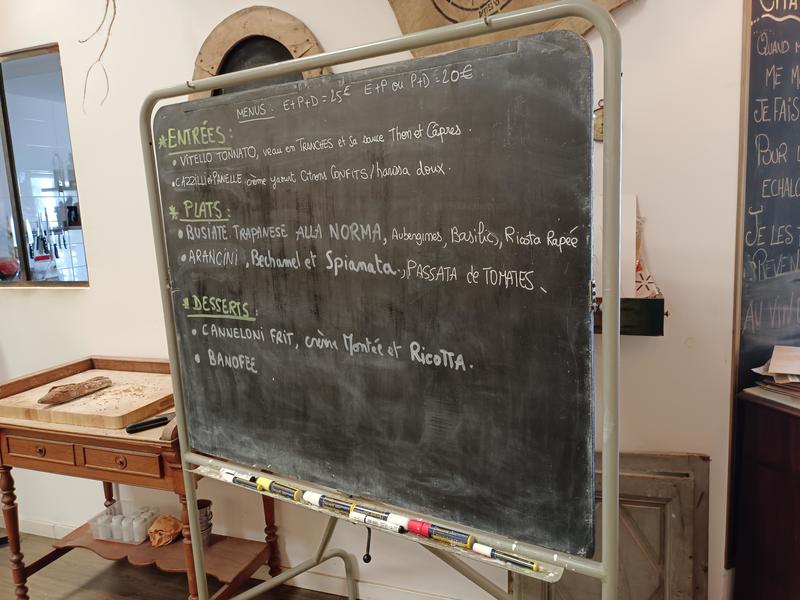 MENUS : E+P+D = 25€ E+P ou P+D = 20€
* ENTRÉES :
• VITELLO TONNATO, veau en TRANCHES et sa sauce Thon et Câpres.
• CAZZILLI et PANELLE crème yaourt Citrons CONFITS / harissa doux.
* PLATS :
• BUSIATE TRAPANESE ALLA NORMA, Aubergines, Basilic, Ricota Rapée
• ARANCINI, Bechamel et Spianata, PASSATA de TOMATES.
* DESSERTS :
• CANNELONI FRIT, crème Montée et RICOTTA.
• BANOFEE
QUAND
ME
JE FAIS
ECHALO
JE LES
AU VIN